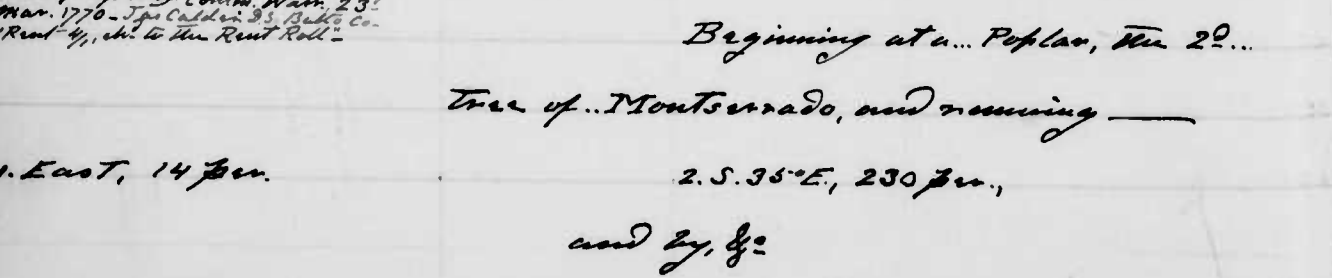 Comm. Warr. 23d
Mar. 1770 - D.S. Balto Co-
"Rent 4/, ch. to the Rent Roll"-
Beginning at a... Poplar, the 2d...
Tree of.. Montserrado, and running ——
1. East, 14 per. 2. S. 35°E., 230 per.,
and by, &c